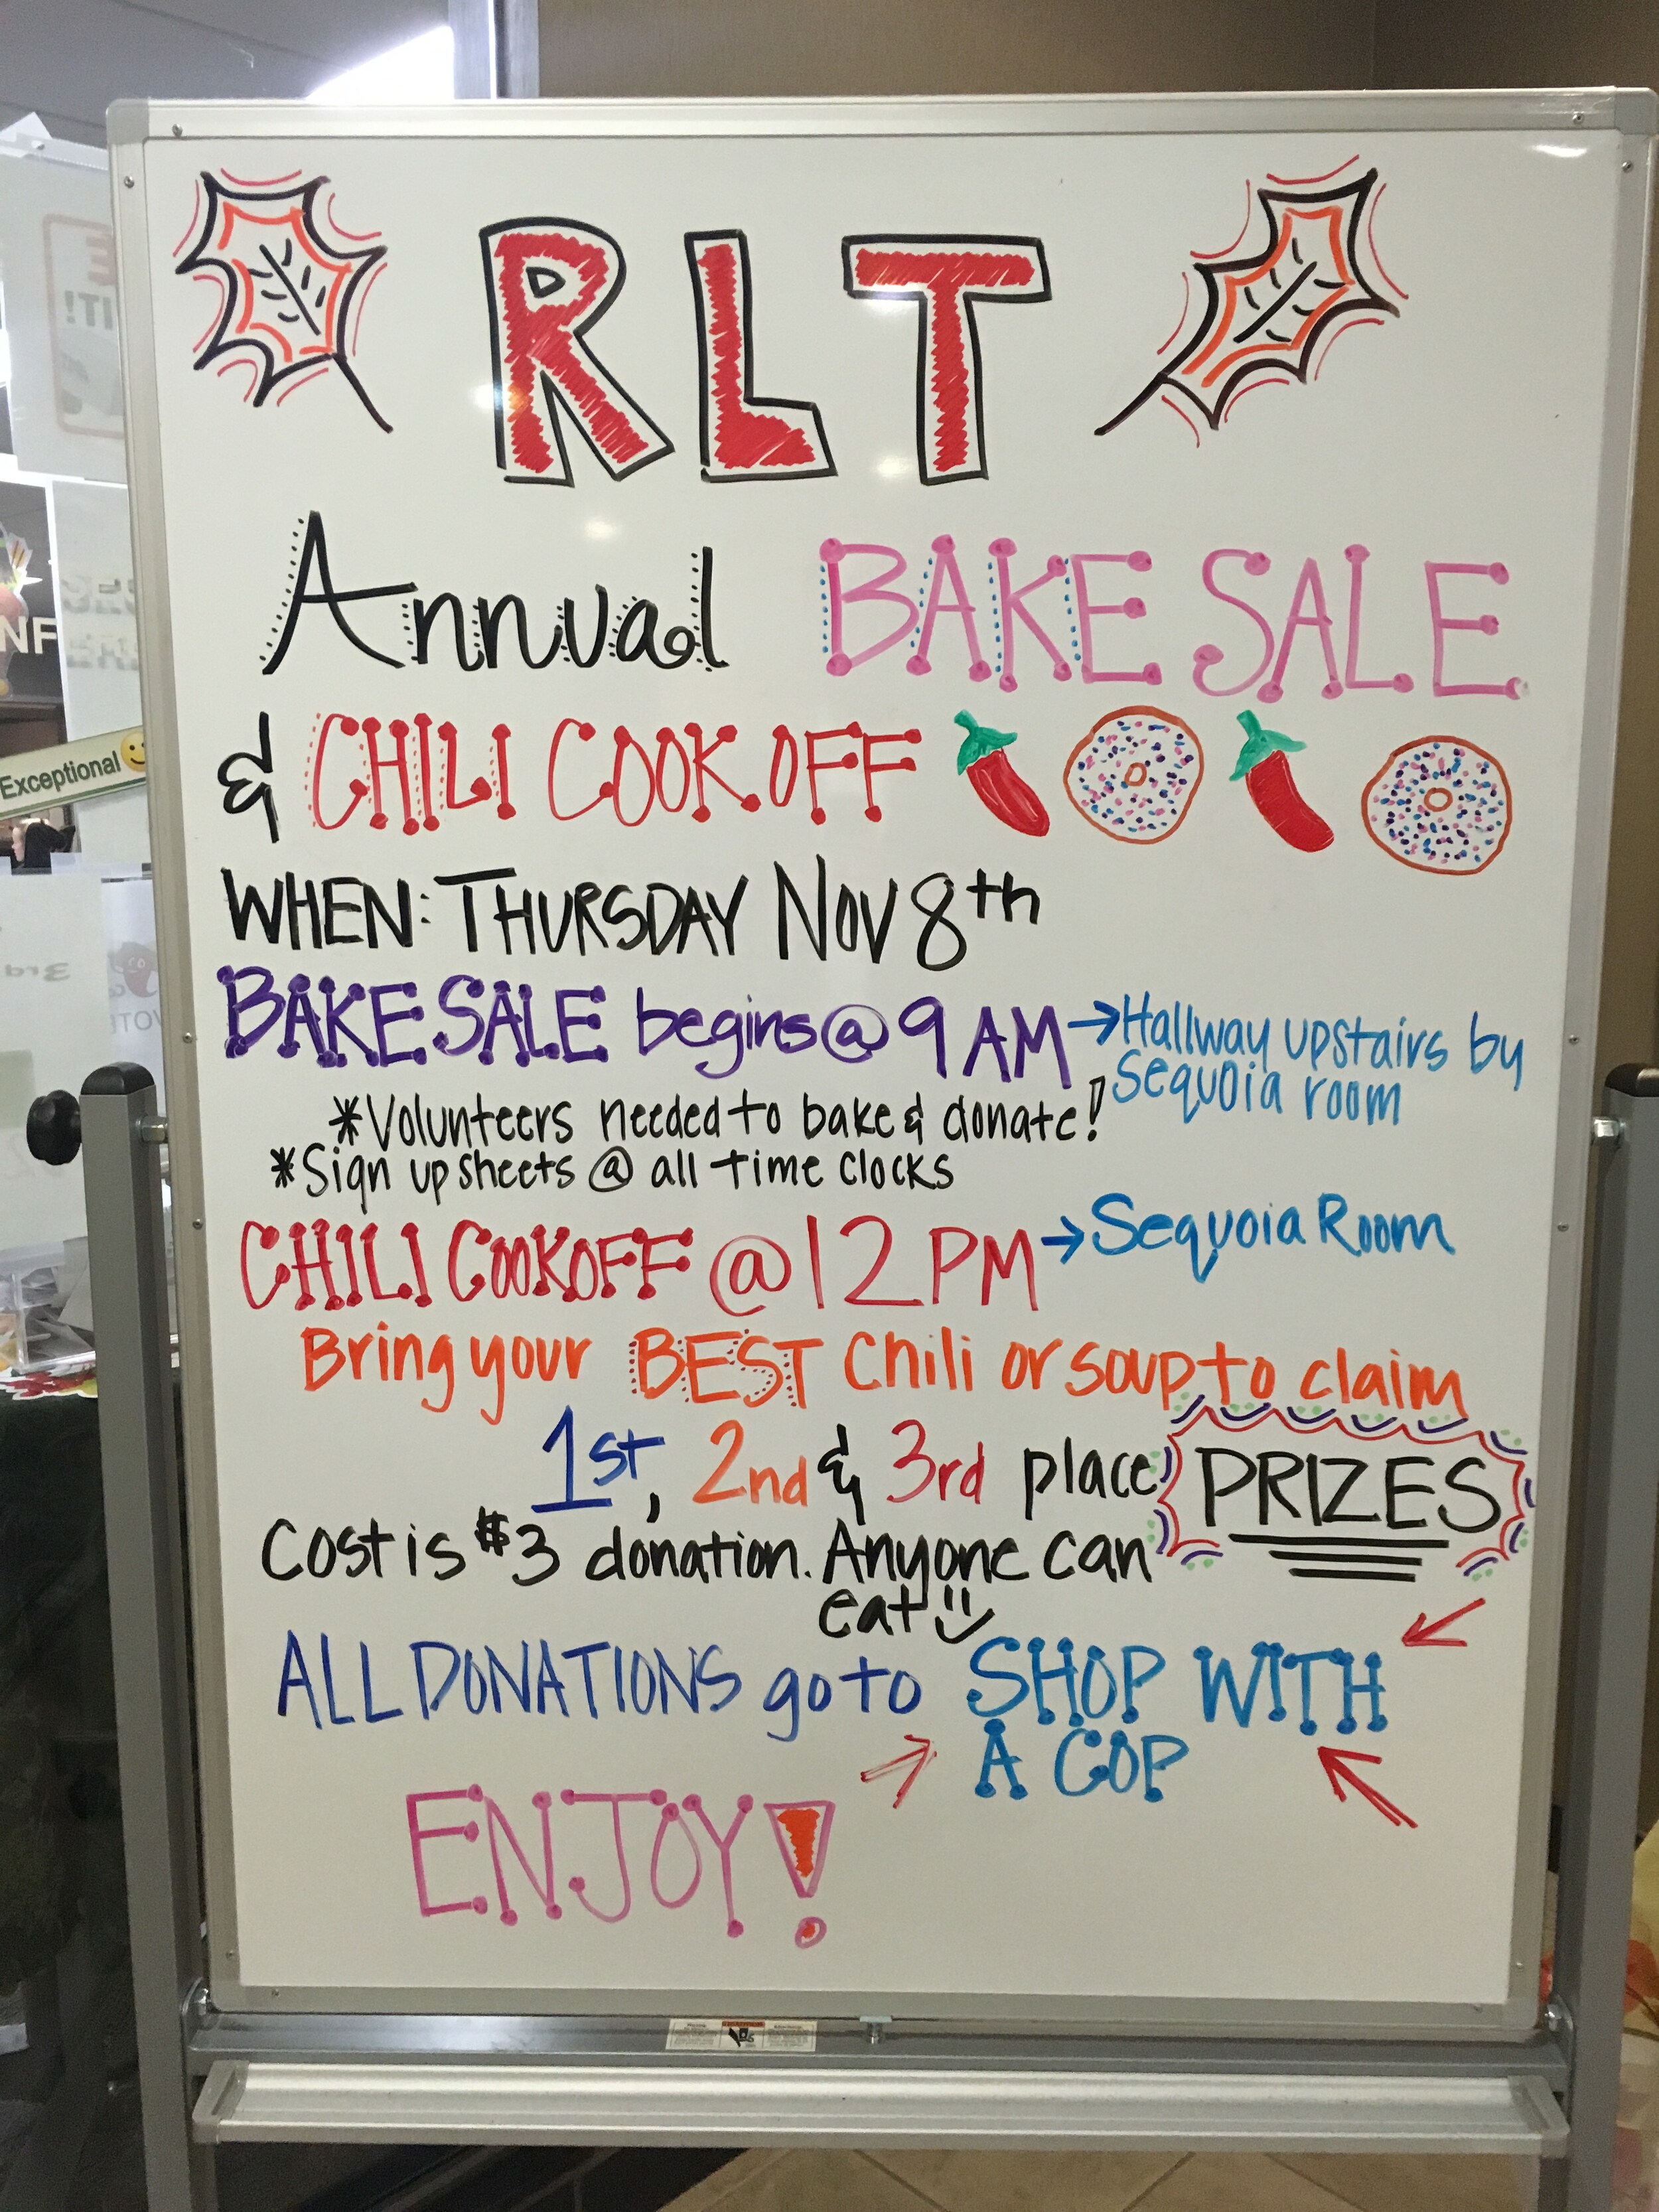 RLT
Annual BAKE SALE
& CHILI COOK OFF
WHEN: THURSDAY NOV 8th
BAKE SALE begins @ 9 AM → Hallway upstairs by
Sequoia room
*Volunteers needed to bake & donate!
*Sign up sheets @ all time clocks
CHILI COOKOFF @ 12 PM → Sequoia Room
Bring your BEST chili or soup to claim
1st, 2nd & 3rd place PRIZES
Cost is $3 donation. Anyone can
eat
ALL DONATIONS go to SHOP WITH
A COP
ENJOY!
Exceptional
NF